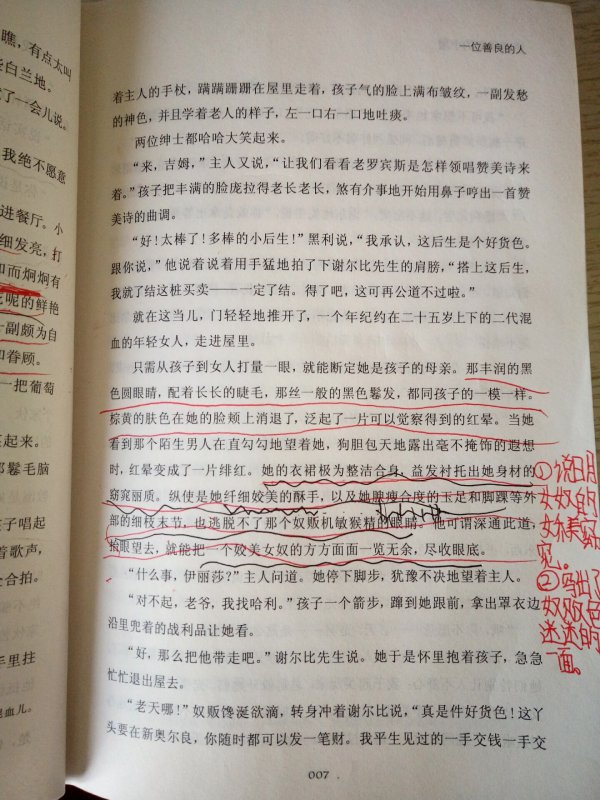 瞧，有点太叫
些白兰地。
了一会儿说。
我绝不愿意
进餐厅。小
细发亮，打
和而炯炯有
呢的鲜艳
一副颇为自
和眷顾。
一把葡萄
笑起来。
鬈毛脑
孩子唱起
着歌声，
合拍。
手里拄
混血儿。
一位善良的人
着主人的手杖，蹒蹒跚跚在屋里走着，孩子气的脸上满布皱纹，一副发愁
的神色，并且学着老人的样子，左一口右一口地吐痰。
两位绅士都哈哈大笑起来。
“来，吉姆，”主人又说，“让我们看看老罗宾斯是怎样领唱赞美诗来
着。”孩子把丰满的脸庞拉得老长老长，煞有介事地开始用鼻子哼出一首赞
美诗的曲调。
“好！太棒了！多棒的小后生！”黑利说，“我承认，这后生是个好货色。
跟你说，”他说着说着用手猛地拍了下谢尔比先生的肩膀，“搭上这后生，
我就了结这桩买卖——一定了结。得了吧，这可再公道不过啦。”
就在这当儿，门轻轻地推开了，一个年纪约在二十五岁上下的二代混
血的年轻女人，走进屋里。
只需从孩子到女人打量一眼，就能断定她是孩子的母亲。那丰润的黑
色圆眼睛，配着长长的睫毛，那丝一般的黑色鬈发，都同孩子的一模一样。
棕黄的肤色在她的脸颊上消退了，泛起了一片可以觉察得到的红晕。当她
看到那个陌生男人在直勾勾地望着她，狗胆包天地露出毫不掩饰的遐想
时，红晕变成了一片绯红。她的衣裙极为整洁合身，益发衬托出她身材的
窈窕丽质。纵使是她纤细姣美的酥手，以及她腴瘦合度的玉足和脚踝等外
部的细枝末节，也逃脱不了那个奴贩机敏猴精的眼睛。他可谓深通此道，
抬眼望去，就能把一个姣美女奴的方方面面一览无余，尽收眼底。
“什么事，伊丽莎？”主人问道。她停下脚步，犹豫不决地望着主人。
“对不起，老爷，我找哈利。”孩子一个箭步，蹿到她跟前，拿出罩衣边
沿里兜着的战利品让她看。
“好，那么把他带走吧。”谢尔比先生说。她于是怀里抱着孩子，急急
忙忙退出屋去。
“老天哪！”奴贩馋涎欲滴，转身冲着谢尔比说，“真是件好货色！这丫
头要在新奥尔良，你随时都可以发一笔财。我平生见过的一手交钱一手交
007
①说明
女奴的
娇美窈
窕。
②写出了
奴贩色
迷迷的
一面。